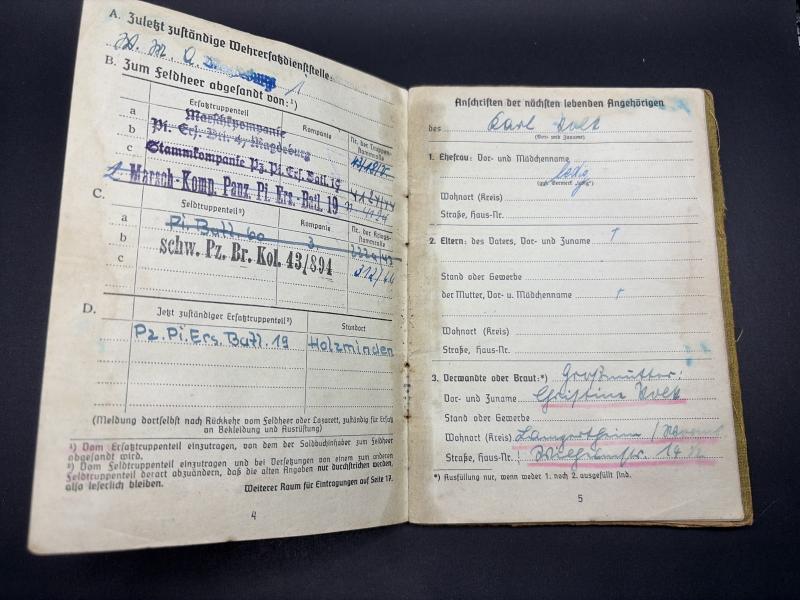 A. Zuletzt zuständige Wehrersatzdienststelle:
W. M. A. 1
B. Zum Feldheer abgesandt von:¹)
Ersatztruppenteil Kompanie Nr. der Truppenstammrolle
a Marschkompanie
b Pi. Ers. Batl. 4, Magdeburg
c Stammkompanie Pz. Pi. Ers. Batl. 19
2. Marsch-Komp. Panz. Pi. Ers.-Batl. 19
C.
Feldtruppenteil²) Kompanie Nr. der Kriegsstammrolle
a Pi. Batl. 60 3.
b schw. Pz. Br. Kol. 43/894
c
D. Jetzt zuständiger Ersatztruppenteil²) Standort
Pz. Pi. Ers. Batl. 19 Holzminden
(Meldung dortselbst nach Rückkehr vom Feldheer oder Lazarett, zuständig für Ersatz
an Bekleidung und Ausrüstung)
¹) Vom Ersatztruppenteil einzutragen, von dem der Soldbuchinhaber zum Feldheer
abgesandt wird.
²) Vom Feldtruppenteil einzutragen und bei Versetzungen von einem zum anderen
Feldtruppenteil derart abzuändern, daß die alten Angaben nur durchstrichen werden,
also leserlich bleiben.
Weiterer Raum für Eintragungen auf Seite 17.
4
Anschriften der nächsten lebenden Angehörigen
des Karl
(Vor- und Zuname)
1. Ehefrau: Vor- und Mädchenname
ledig
(ggf. Vermerk „ledig“)
Wohnort (Kreis)
Straße, Haus-Nr.
2. Eltern: des Vaters, Vor- und Zuname †
Stand oder Gewerbe
der Mutter, Vor- u. Mädchenname †
Wohnort (Kreis)
Straße, Haus-Nr.
3. Verwandte oder Braut:*) Großmutter:
Vor- und Zuname Christine
Stand oder Gewerbe
Wohnort (Kreis)
Straße, Haus-Nr.
*) Ausfüllung nur, wenn weder 1. noch 2. ausgefüllt sind.
5